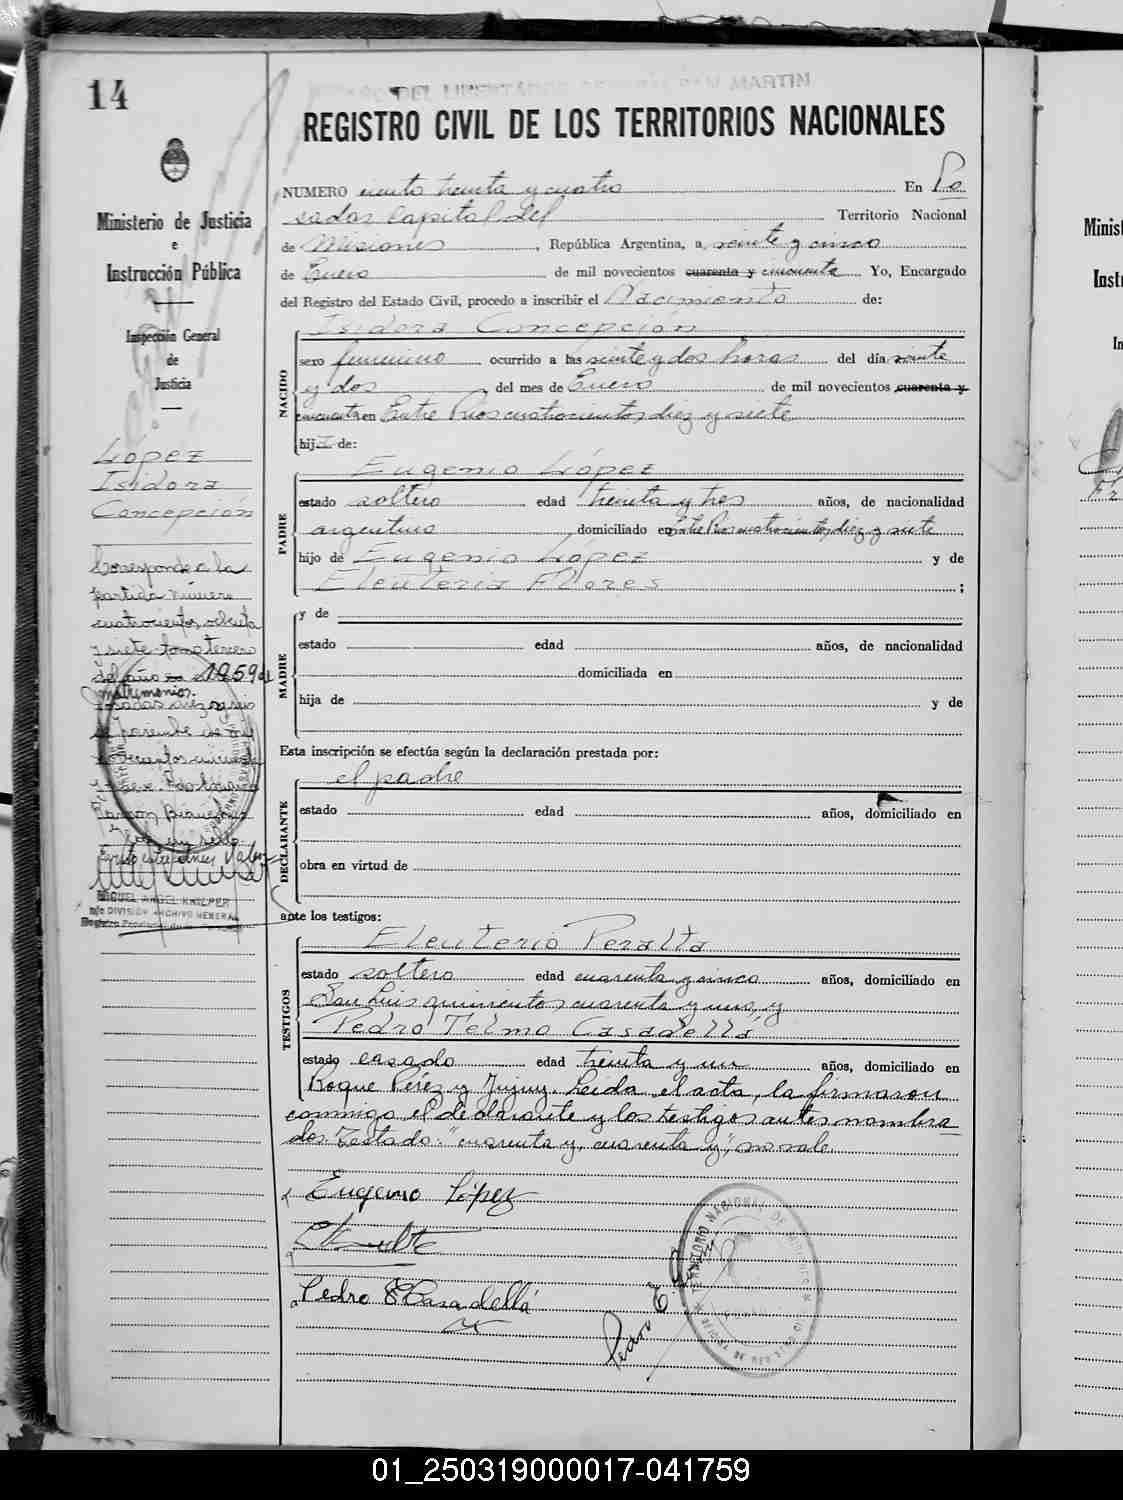 14
DEL LIBERTADOR GENERAL SAN MARTIN
REGISTRO CIVIL DE LOS TERRITORIOS NACIONALES
Ministerio de Justicia
e
Instrucción Pública
Inspección General
de
Justicia
López
Isidora
Concepción
Corresponde a la
partida número
cuatrocientos ochenta
y siete tomo tercero
del año 1959 de
matrimonios.
MIGUEL ANGEL KNILPER
DIVISIÓN ARCHIVO GENERAL
NUMERO ciento treinta y cuatro En Po
sadas Capital del Territorio Nacional
de Misiones, República Argentina, a veinte y cinco
de Enero de mil novecientos cuarenta y cincuenta Yo, Encargado
del Registro del Estado Civil, procedo a inscribir el Nacimiento de:
NACIDO
Isidora Concepción
sexo femenino ocurrido a las veinte y dos horas del día veinte
y dos del mes de Enero de mil novecientos cuarenta y
cincuenta en Entre Rios cuatrocientos diez y siete
hija de:
PADRE
Eugenio López
estado soltero edad treinta y tres años, de nacionalidad
argentino domiciliado en Entre Rios cuatrocientos diez y siete
hijo de Eugenio López y de
Eleuteria Flores;
MADRE
y de
estado edad años, de nacionalidad
domiciliada en
hija de y de
Esta inscripción se efectúa según la declaración prestada por:
DECLARANTE
el padre
estado edad años, domiciliado en
obra en virtud de
ante los testigos:
TESTIGOS
Eleuterio Peralta
estado soltero edad cuarenta y cinco años, domiciliado en
San Luis quinientos cuarenta y uno, y
Pedro Telmo Casadellá
estado casado edad treinta y un años, domiciliado en
Roque Pérez y Jujuy. Leida el acta, la firmaron
conmigo el declarante y los testigos antes nombra
dos. Testado: "cuarenta y, cuarenta y", no vale.
Eugenio López
Pedro T Casadellá
Pedro E.
TERRITORIO NACIONAL DE MISIONES
01_250319000017-041759